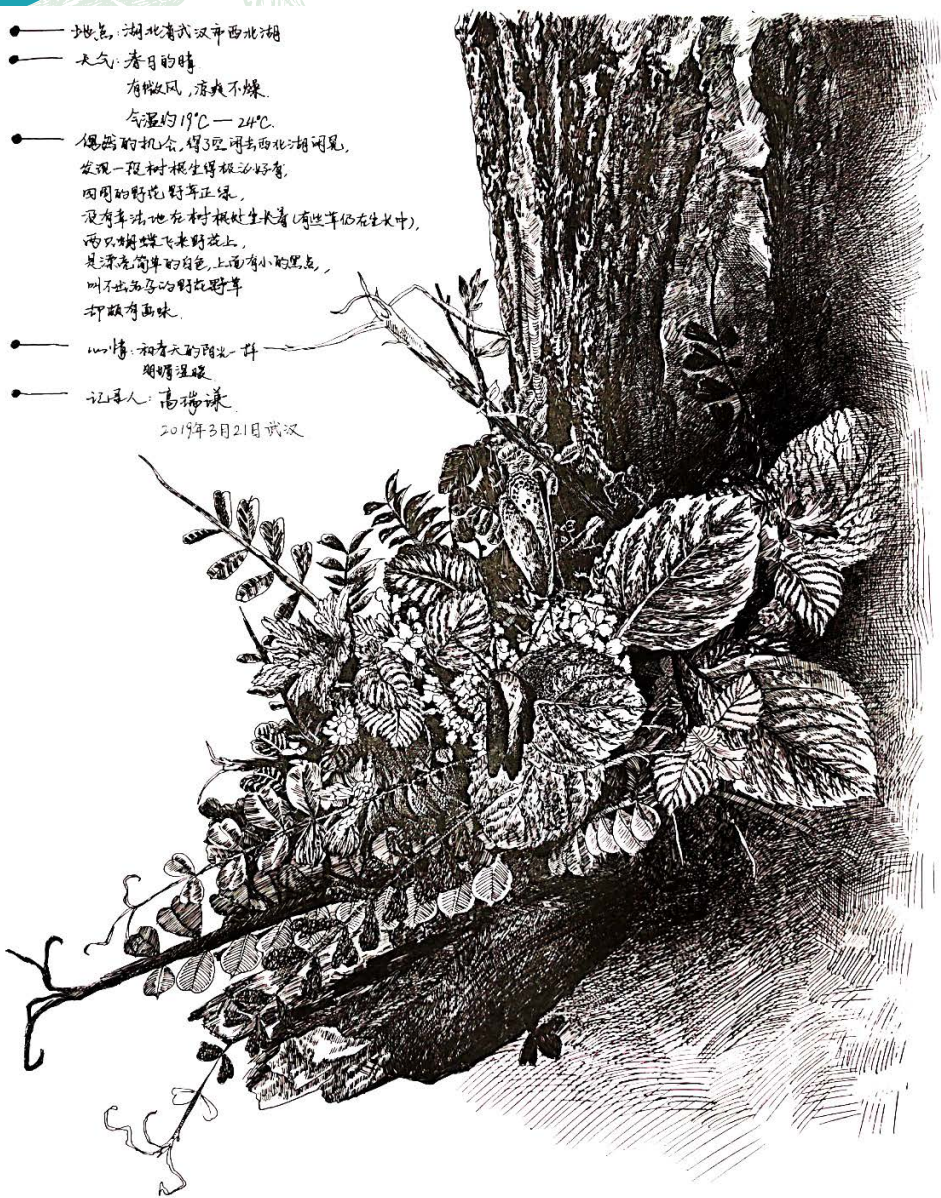 地点：湖北省武汉市西北湖
天气：春日的晴
有微风，凉爽不燥.
气温约19℃—24℃.
偶然的机会，得了空闲去西北湖闲晃，
发现一段树根生得极为好看，
四周的野花野草正绿，
没有章法地在树根处生长着(有些草仍在生长中)，
两只蝴蝶飞来野花上，
是漂亮简单的白色，上面有小的黑点，
叫不出名字的野花野草
却颇有画味.
心情：和春天的阳光一样
明媚温暖
记录人：高瑞谦
2019年3月21日武汉